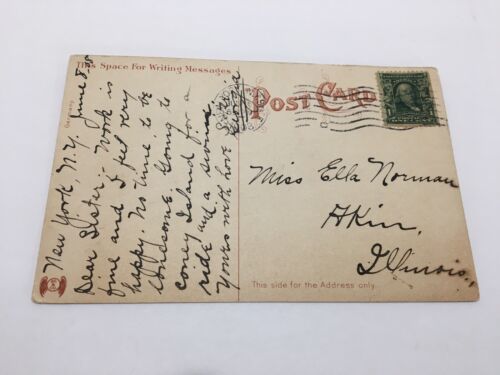 This Space For Writing Messages
Germany
New York N.Y. June 8
Dear Sister:- Work is
fine and I feel very
happy. No time to be
lonesome. Going to
coney Island for a
ride and a swim.
Yours with love
Georgia
POST CARD
Miss Ella Norman
Akin,
Illinois.
This side for the Address only.